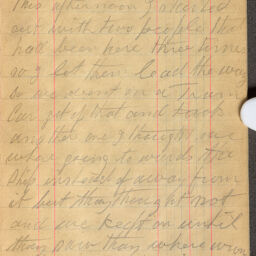 This afternoon I started
out with two people that
had been here three times
so I let them lead the way
so we went on a Tram
Car got off that and took
another one I thought we
where going to wards the
Ship instead of away from
it but they thought not
and we kept on until
they saw they where wron